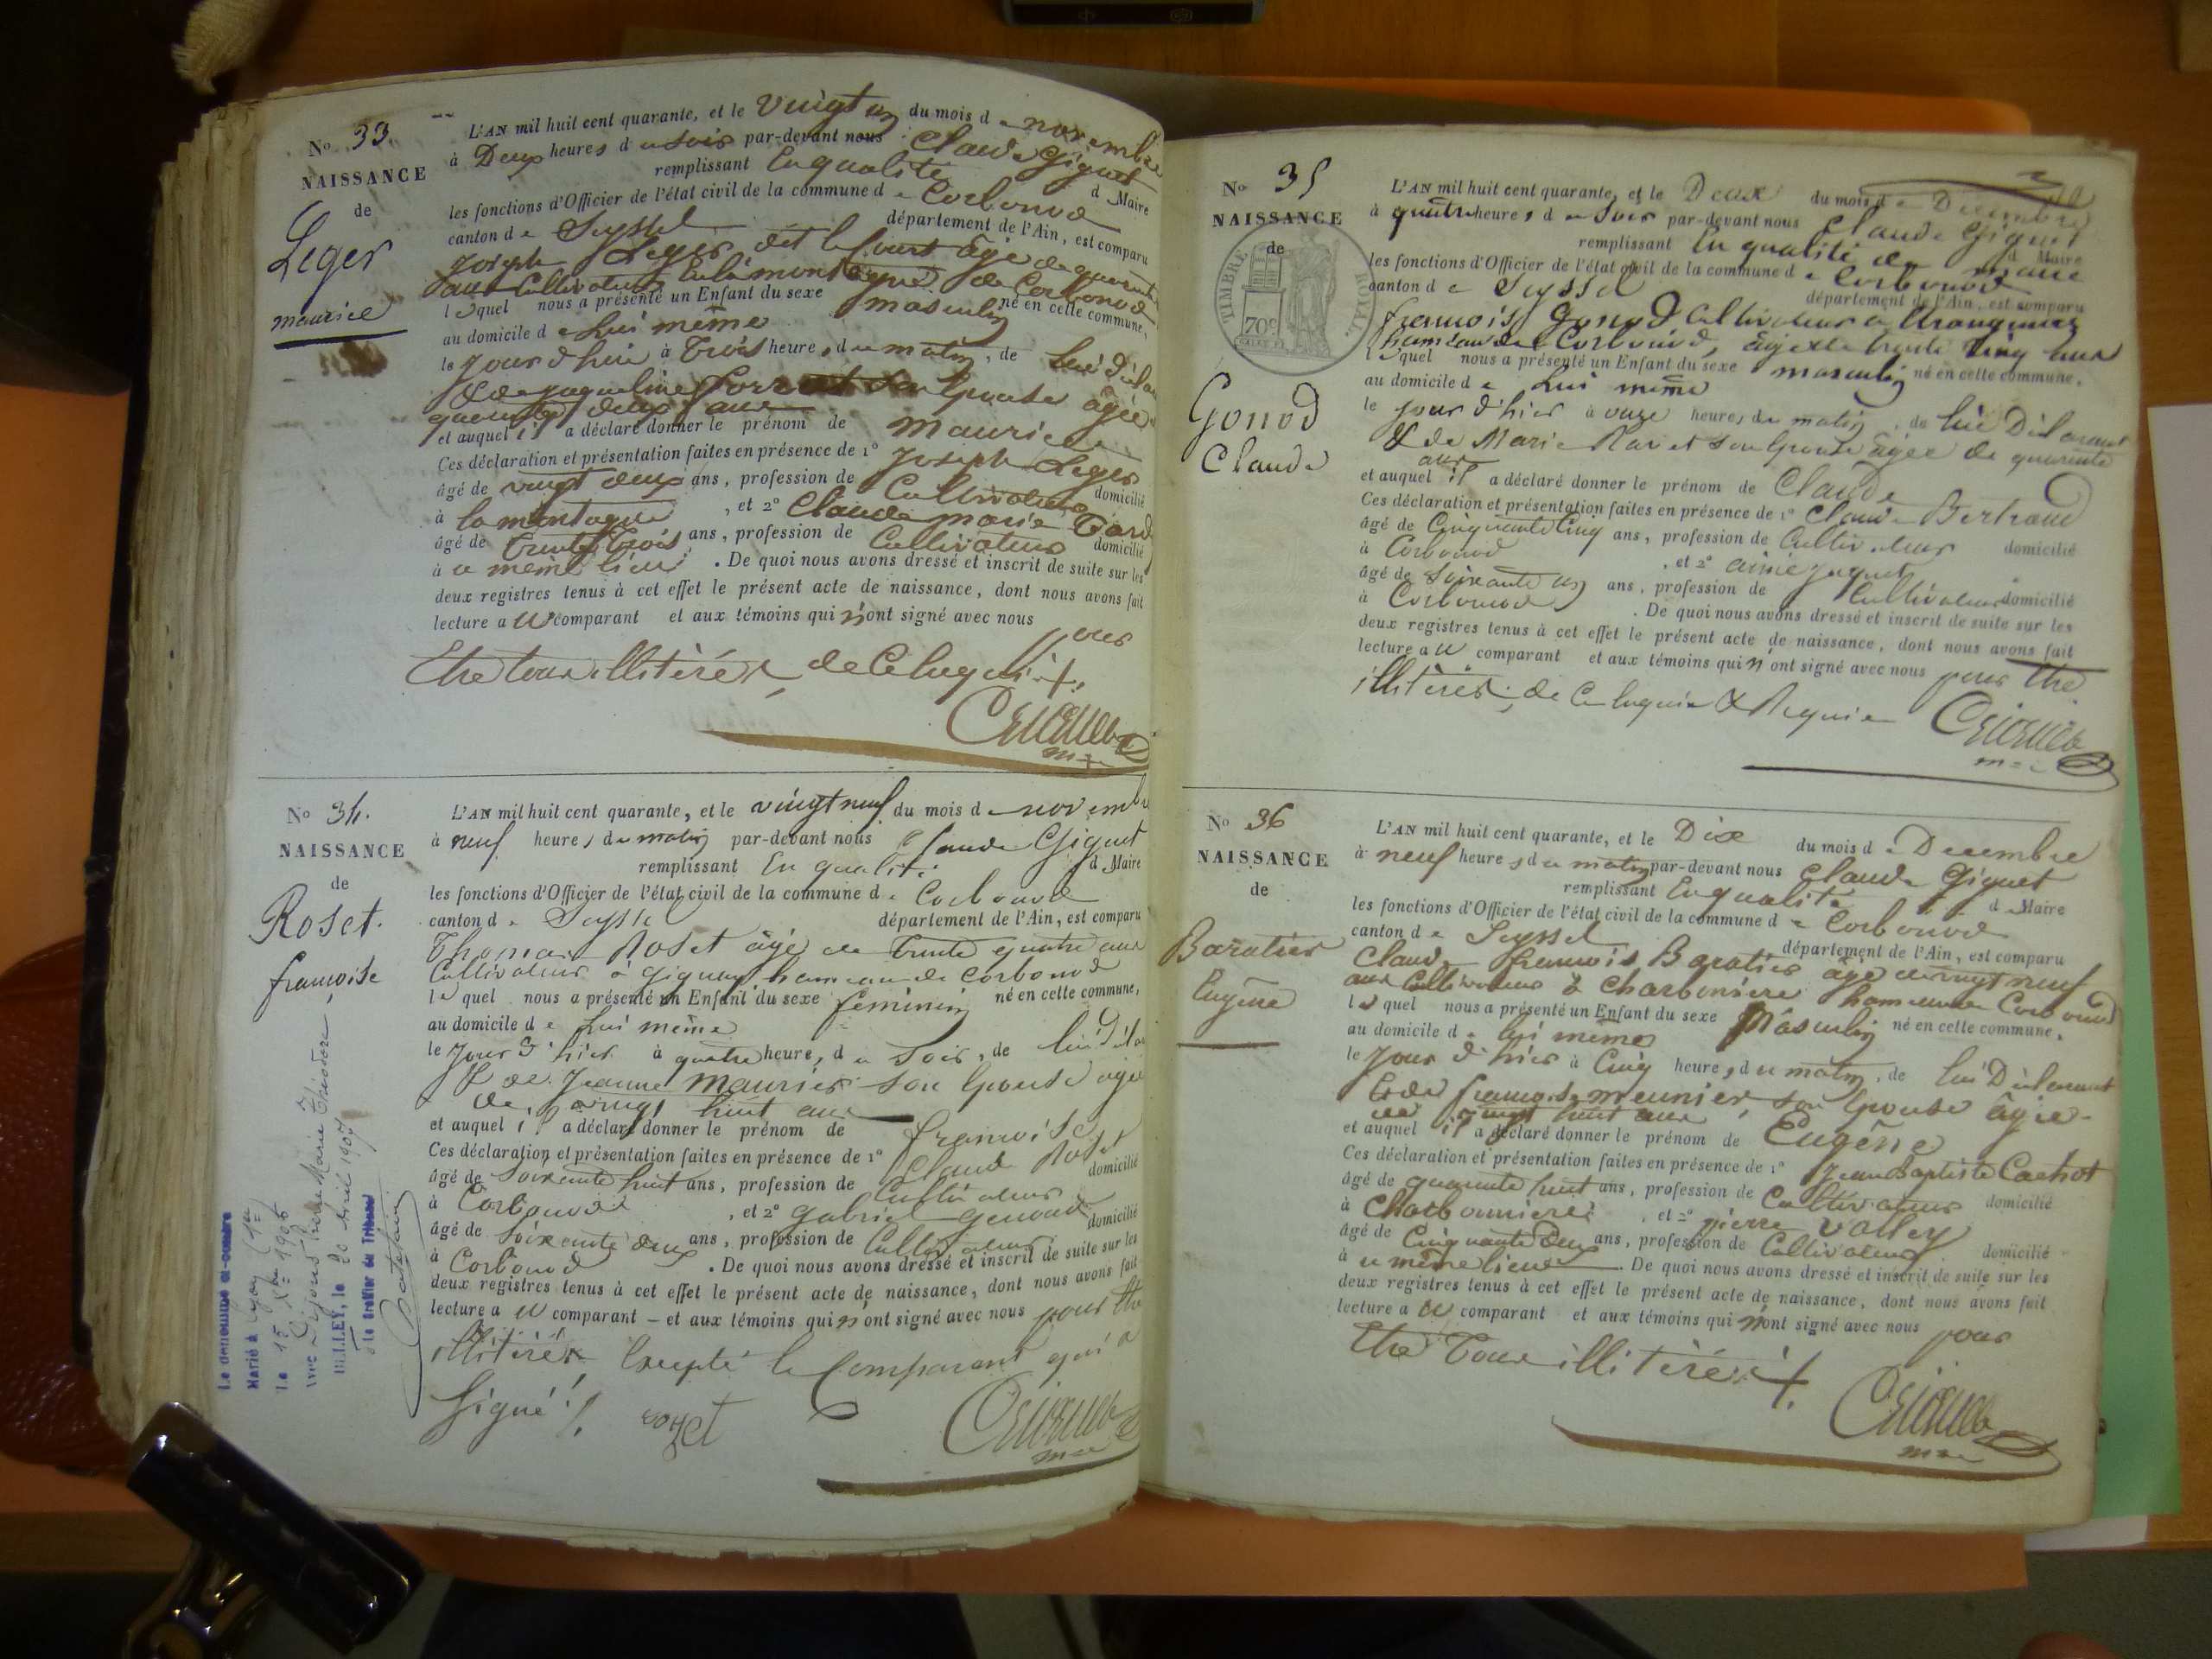 No 33.
NAISSANCE
de
Leger
maurice
L'AN mil huit cent quarante, et le vingt un du mois de novembre
à Deux heures du soir par-devant nous Claude Giguet
remplissant En qualité d Maire
les fonctions d'Officier de l'état civil de la commune de Corbonod
canton de Seyssel département de l'Ain, est comparu
joseph Leger dit le court âgé de quarante
ans Cultivateur à la montagne de Corbonod
lequel nous a présenté un Enfant du sexe masculin né en cette commune,
au domicile de Lui même
le jour d'hui à Trois heures du matin, de lui
& de jaqueline son Epouse âgée
quarante deux ans
et auquel il a déclaré donner le prénom de maurice
Ces déclaration et présentation faites en présence de 1° joseph Leger
âgé de vingt deux ans, profession de Cultivateur domicilié
à la montagne, et 2° Claude marie
âgé de trente trois ans, profession de Cultivateur domicilié
à ce même lieu. De quoi nous avons dressé et inscrit de suite sur les
deux registres tenus à cet effet le présent acte de naissance, dont nous avons fait
lecture au comparant et aux témoins qui n'ont signé avec nous pour
Etre tous illitérés, de ce Enquis
No 34.
NAISSANCE
de
Roset.
francoise
L'AN mil huit cent quarante, et le vingt neuf du mois de novembre
à neuf heures du matin par-devant nous Claude Giguet
remplissant En qualité d Maire
les fonctions d'Officier de l'état civil de la commune de Corbonod
canton de Seyssel département de l'Ain, est comparu
Thomas Roset âgé de trente quatre ans
Cultivateur à gignay hameau de Corbonod
lequel nous a présenté un Enfant du sexe feminin né en cette commune,
au domicile de Lui même
le jour d'hier à quatre heures du soir, de lui
& de Jeanne maurier son Epouse agée
de vingt huit ans
et auquel il a déclaré donner le prénom de francoise
Ces déclaration et présentation faites en présence de 1° Claude Roset
âgé de soixante huit ans, profession de Cultivateur domicilié
à Corbonod, et 2° gabriel
âgé de soixante deux ans, profession de Cultivateur domicilié
à Corbonod. De quoi nous avons dressé et inscrit de suite sur les
deux registres tenus à cet effet le présent acte de naissance, dont nous avons fait
lecture au comparant et aux témoins qui n'ont signé avec nous pour Etre
illitérés, Excepté le Comparant qui a
signé
Roset
Marié à Lyon
BELLEY, le 20 avril 1907
Le Greffier du Tribunal
No 35
NAISSANCE
de
TIMBRE ROYAL
70c
Gonod
Claude
L'AN mil huit cent quarante, et le Deux du mois de Decembre
à quatre heures du soir par-devant nous Claude Giguet
remplissant En qualité de maire d Maire
les fonctions d'Officier de l'état civil de la commune de Corbonod
canton de Seyssel département de l'Ain, est comparu
francois Gonod Cultivateur à
hameau de Corbonod, âgé de trente Cinq ans
lequel nous a présenté un Enfant du sexe masculin né en cette commune,
au domicile de Lui même
le jour d'hier à onze heures du matin, de lui Déclarant
& de Marie son Epouse âgée de quarante
ans
et auquel il a déclaré donner le prénom de Claude
Ces déclaration et présentation faites en présence de 1° Claude Bertrand
âgé de Cinquante Cinq ans, profession de Cultivateur domicilié
à Corbonod, et 2° aimé jaquet
âgé de soixante un ans, profession de Cultivateur domicilié
à Corbonod. De quoi nous avons dressé et inscrit de suite sur les
deux registres tenus à cet effet le présent acte de naissance, dont nous avons fait
lecture au comparant et aux témoins qui n'ont signé avec nous pour Etre
illitérés, de Ce Enquis & Requis
No 36
NAISSANCE
de
Baratier
Eugène
L'AN mil huit cent quarante, et le Dix du mois de Decembre
à neuf heures du matin par-devant nous Claude Giguet
remplissant En qualité d Maire
les fonctions d'Officier de l'état civil de la commune de Corbonod
canton de Seyssel département de l'Ain, est comparu
Claude francois Baratier âgé de vingt neuf
ans Cultivateur à Charboniere hameau de Corbonod
lequel nous a présenté un Enfant du sexe Masculin né en cette commune,
au domicile de lui même
le jour d'hier à Cinq heures du matin, de lui Déclarant
Et de françoise meunier, son Epouse âgée
de vingt huit ans
et auquel il a déclaré donner le prénom de Eugène
Ces déclaration et présentation faites en présence de 1° Jean Baptiste Cachot
âgé de quarante huit ans, profession de Cultivateur domicilié
à Charbonniere, et 2° pierre Valley
âgé de Cinquante Deux ans, profession de Cultivateur domicilié
à ce même lieu. De quoi nous avons dressé et inscrit de suite sur les
deux registres tenus à cet effet le présent acte de naissance, dont nous avons fait
lecture au comparant et aux témoins qui n'ont signé avec nous pour
Etre Tous illitérés